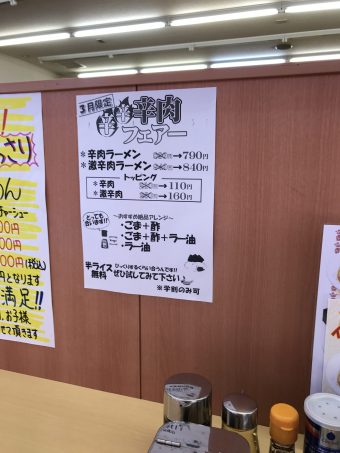 3月限定
辛辛 辛肉
フェアー
＊辛肉ラーメン →790円
＊激辛肉ラーメン →840円
トッピング
＊辛肉 →110円
＊激辛肉 →160円
とっても合います!!
〜おすすめ絶品アレンジ〜
・ごま＋酢
・ごま＋酢＋ラー油
・ラー油
半ライス無料
びっくりするくらい合うんです!!
ぜひ試してみて下さい♪
＊学割のみ可
さり
めん
チャーシュー
00円
00円
00円(税込)
円となります
満足!!
お子様
せて頂きます